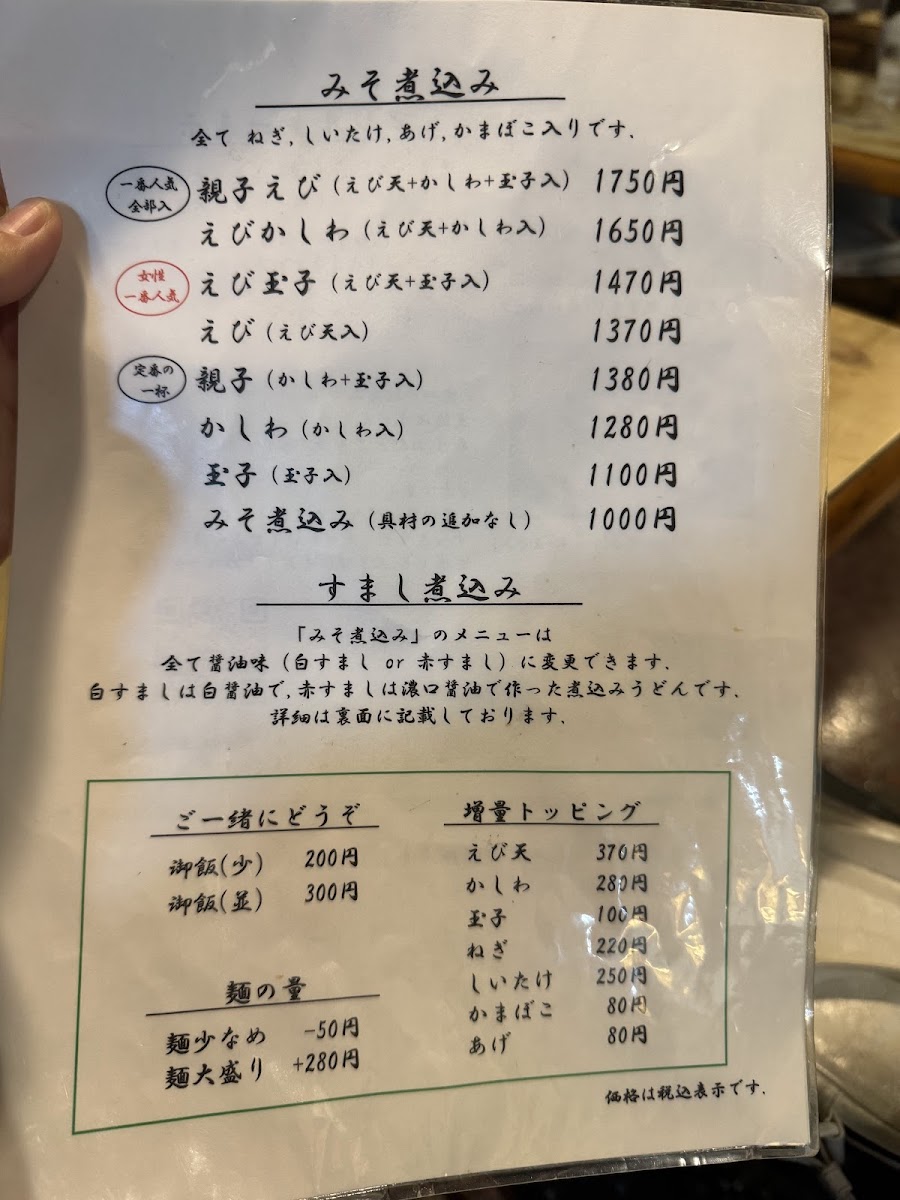 みそ煮込み
全て ねぎ,しいたけ,あげ,かまぼこ入りです.
一番人気
全部入
親子えび(えび天+かしわ+玉子入) 1750円
えびかしわ(えび天+かしわ入) 1650円
女性
一番人気
えび玉子(えび天+玉子入) 1470円
えび(えび天入) 1370円
定番の
一杯
親子(かしわ+玉子入) 1380円
かしわ(かしわ入) 1280円
玉子(玉子入) 1100円
みそ煮込み(具材の追加なし) 1000円
すまし煮込み
「みそ煮込み」のメニューは
全て醤油味(白すまし or 赤すまし)に変更できます.
白すましは白醤油で,赤すましは濃口醤油で作った煮込みうどんです.
詳細は裏面に記載しております.
ご一緒にどうぞ
御飯(少) 200円
御飯(並) 300円
麺の量
麺少なめ -50円
麺大盛り +280円
増量トッピング
えび天 370円
かしわ 280円
玉子 100円
ねぎ 220円
しいたけ 250円
かまぼこ 80円
あげ 80円
価格は税込表示です.